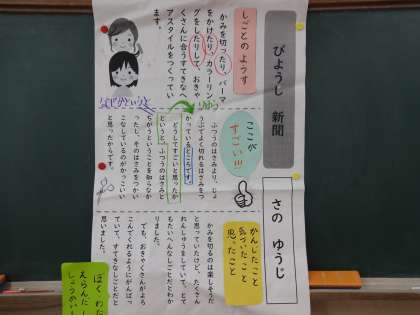 びようし 新聞
さの ゆうじ
しごとのようす
かみを切ったり、パーマ
をかけたり、カラーリン
グをしたりして、おきゃ
くさんに合うすてきなヘ
アスタイルをつくってい
ます。
ここが
すごい!!!
ふつうのはさみより、じょ
うぶでよく切れるはさみをつ
かっているところです。
どうしてすごいと思ったか
というと、ふつうのはさみと
ちがうということを知らなか
ったし、そのはさみをつかい
こなしているのがかっこいい
と思ったからです。
かんしたこと
気づいたこと
思ったこと
かみを切るのは楽しそうだ
と思っていたけど、たくさん
れんしゅうをしていて、とて
もたいへんなしごとだとわか
りました。
でも、おきゃくさんがよろ
こんでくれるようにがんばっ
ていて、すてきなしごとだと
思いました。